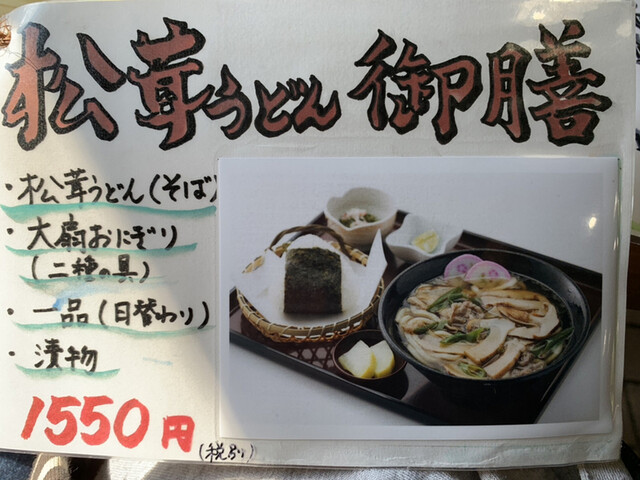 松茸うどん御膳
・松茸うどん(そば)
・大扇おにぎり
(二種の具)
・一品(日替わり)
・漬物
1550円
(税別)